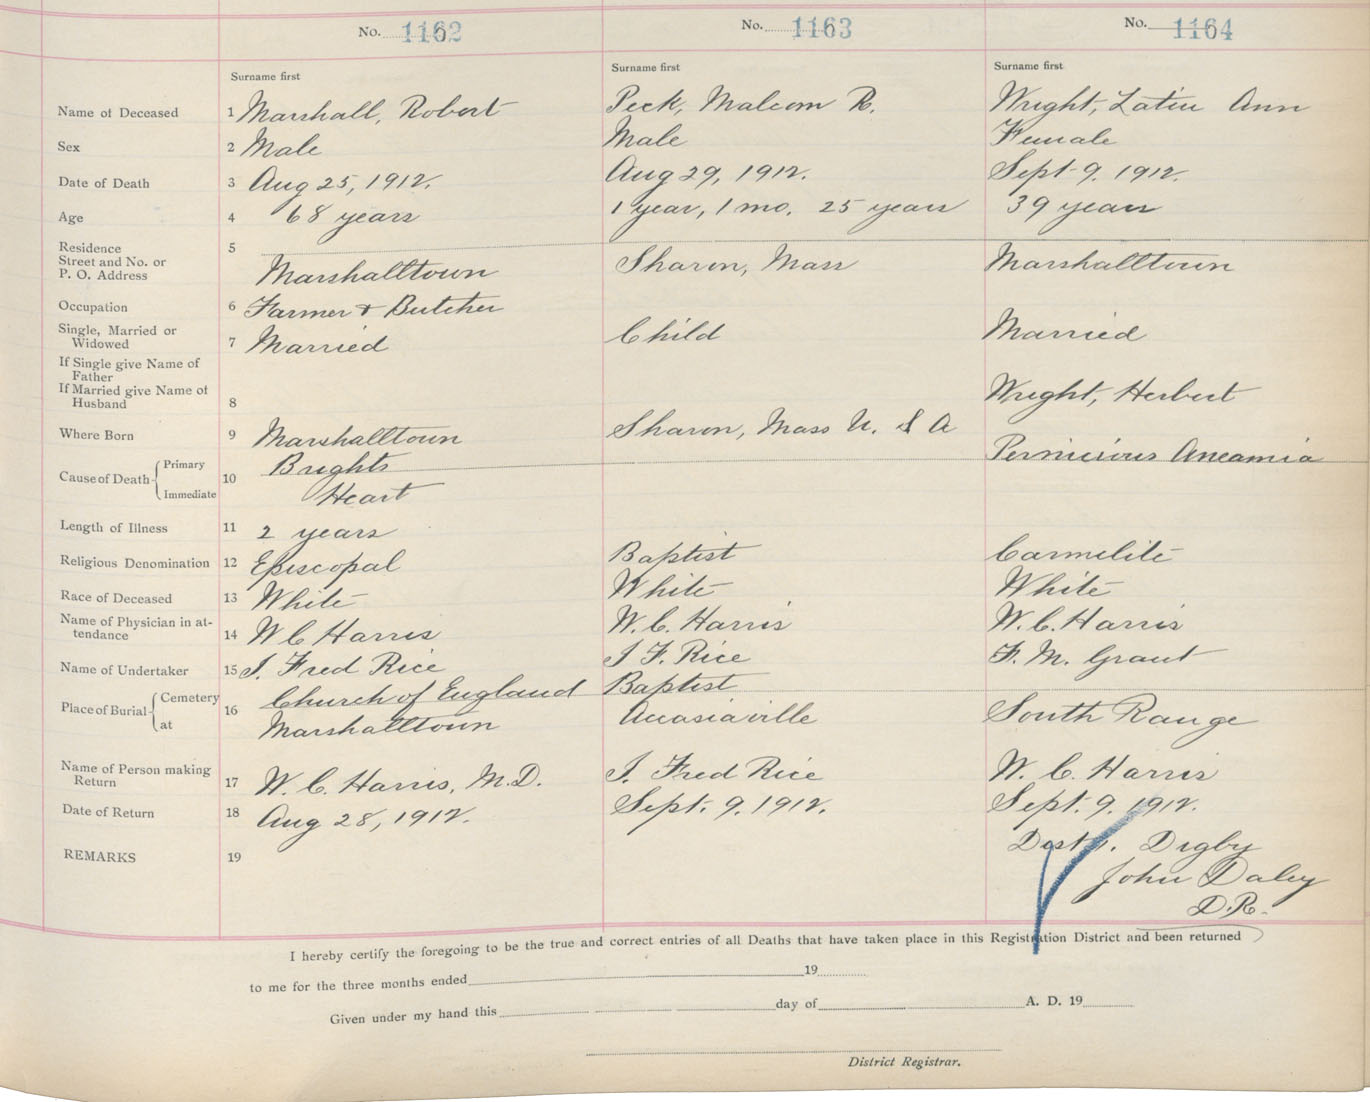 No. 1162 No. 1163 No. 1164
Surname first Surname first Surname first
Name of Deceased 1 Marshall, Robert Peck, Malcom R. Wright, Ann
Sex 2 Male Male Female
Date of Death 3 Aug 25, 1912. Aug 29, 1912. Sept 9. 1912.
Age 4 68 years 1 year, 1 mo. 25 years 39 years
Residence 5
Street and No. or
P. O. Address Marshalltown Sharon, Mass Marshalltown
Occupation 6 Farmer & Butcher
Single, Married or
Widowed 7 Married Child Married
If Single give Name of
Father
If Married give Name of
Husband 8 Wright, Herbert
Where Born 9 Marshalltown Sharon, Mass U. S A
Cause of Death Primary 10 Brights Pernicious Aneamia
Immediate Heart
Length of Illness 11 2 years
Religious Denomination 12 Episcopal Baptist Carmelite
Race of Deceased 13 White White White
Name of Physician in at-
tendance 14 W C Harris W. C. Harris W. C. Harris
Name of Undertaker 15 J. Fred Rice J F. Rice F. M. Grant
Place of Burial Cemetery 16 Church of England Baptist
at Marshalltown Accasiaville South Range
Name of Person making
Return 17 W. C. Harris, M.D. J. Fred Rice W. C. Harris
Date of Return 18 Aug 28, 1912. Sept. 9. 1912. Sept. 9. 1912.
REMARKS 19 Dist 1. Digby
John Daley
D.R.
I hereby certify the foregoing to be the true and correct entries of all Deaths that have taken place in this Registration District and been returned
to me for the three months ended 19
Given under my hand this day of A. D. 19
District Registrar.